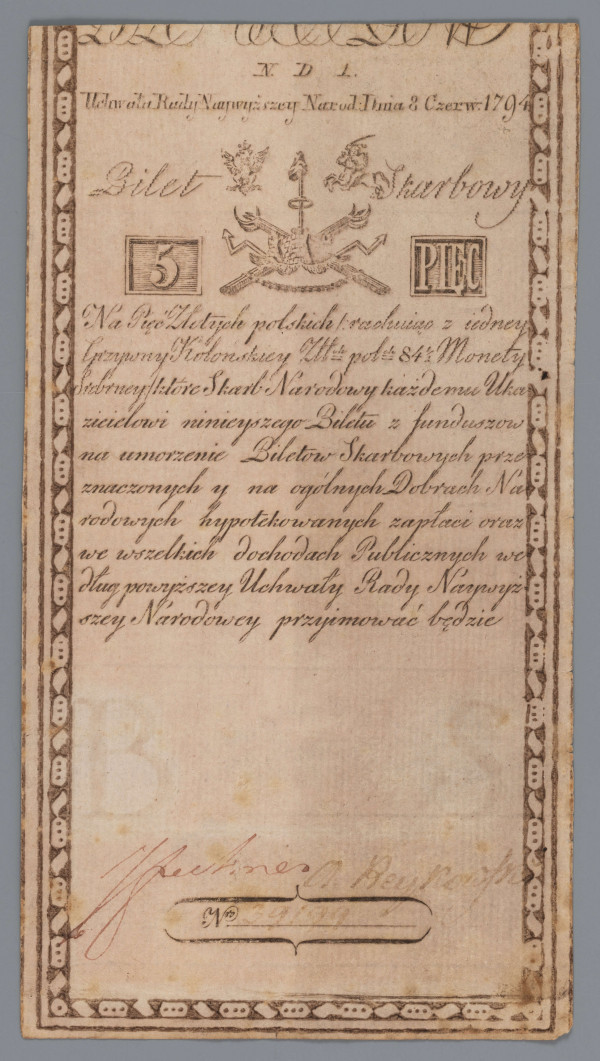 N. D 1.
Uchwała Rady Naywyższey Narod: Dnia 8 Czerw: 1794
Bilet Skarbowy
5 PIĘĆ
Na Pięć Złotych polskich /: rachuiąc z iedney
Grzywny Kolonskiey Złt. pol. 84 ½ Monety
Srebrney :/ które Skarb Narodowy każdemu Uka
zicielowi ninieyszego Biletu z funduszow
na umorzenie Biletow Skarbowych prze
znaczonych y na ogólnych Dobrach Na
rodowych hypotekowanych zapłaci oraz
we wszelkich dochodach Publicznych we
dług powyższey Uchwały Rady Naywyż
szey Narodowey przyimować będzie
Nro